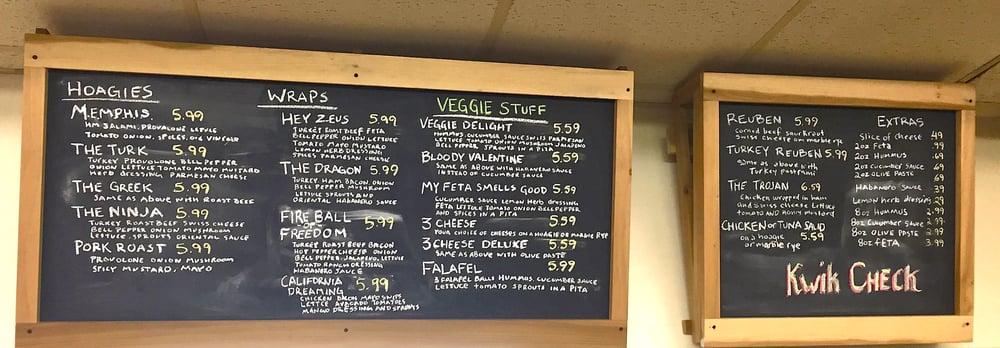 HOAGIES
MEMPHIS. 5.99
HAM SALAMI, PROVALONE LETTUCE
TOMATO ONION, SPICES, OIL VINEGAR
THE TURK 5.99
TURKEY PROVOLONE BELL PEPPER
ONION LETTUCE TOMATO MAYO MUSTARD
HERB DRESSING PARMESAN CHEESE
THE GREEK 5.99
SAME AS ABOVE WITH ROAST BEEF
THE NINJA 5.99
TURKEY ROAST BEEF SWISS CHEESE
BELL PEPPER ONION MUSHROOM
LETTUCE, SPROUTS ORIENTAL SAUCE
PORK ROAST 5.99
PROVOLONE ONION MUSHROOM
SPICY MUSTARD, MAYO
WRAPS
HEY ZEUS 5.99
TURKEY ROAST BEEF FETA
BELL PEPPER ONION LETTUCE
TOMATO MAYO MUSTARD
LEMON HERB DRESSING
SPICES PARMESAN CHEESE
THE DRAGON 5.99
TURKEY HAM BACON ONION
BELL PEPPER MUSHROOM
LETTUCE SPROUTS AND
ORIENTAL HABANERO SAUCE
FIRE BALL 5.99
FREEDOM
TURKEY ROAST BEEF BACON
HOT PEPPER CHEESE ONION
BELL PEPPER, JALAPENO, LETTUCE
TOMATO RANCH DRESSING
HABANERO SAUCE
CALIFORNIA 5.99
DREAMING
CHICKEN BACON MAYO SWISS
LETTCE AVOCADO TOMATOES
MANGO DRESSING AND SPROUTS
VEGGIE STUFF
VEGGIE DELIGHT 5.59
HUMMUS, CUCUMBER SAUCE SWISS PARMESAN
LETTUCE TOMATO ONION BELL PEPPER MUSHROOM JALAPENO
BELL PEPPER SPROUTS IN A PITA
BLOODY VALENTINE 5.59
SAME AS ABOVE WITH HABANERO SAUCE
INSTEAD OF CUCUMBER SAUCE
MY FETA SMELLS GOOD 5.59
CUCUMBER SAUCE LEMON HERB DRESSING
FETA LETTUCE TOMATO ONION BELL PEPPER
AND SPICES IN A PITA
3 CHEESE 5.59
YOUR CHOICE OF CHEESES ON A HOAGIE OR MARBLE RYE
3 CHEESE DELUXE 5.59
SAME AS ABOVE WITH OLIVE PASTE
FALAFEL 5.99
3 FALAFEL BALLS HUMMUS, CUCUMBER SAUCE
LETTUCE TOMATO SPROUTS IN A PITA
REUBEN 5.99
corned beef saurkraut
Swiss cheese on marble rye
TURKEY REUBEN 5.99
same as above with
Turkey pastrami
THE TROJAN 6.59
Chicken wrapped in ham
and Swiss cheese Lettuce
TOMATO AND ADYN MUSTARD
CHICKEN OR TUNA SALAD
on a hoagie 5.59
or marble rye
EXTRAS
Slice of cheese .49
2oz Feta .99
2oz HUMMUS .69
2oz cucumber sauce .69
2oz OLIVE PASTE .69
HABANERO SAUCE .39
Lemon herb dressing .29
8oz HUMMUS 2.99
8oz Cucumber sauce 2.99
8oz OLIVE PASTE 2.99
8oz FETA 3.99
Kwik CHECK